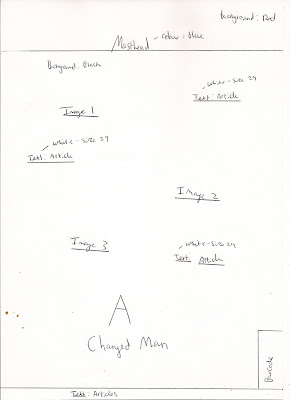 Background: Red
Masthead - colour - blue
Background: Black
white - size 29
Text: Article
Image 1
white - size 29
Text: Article
Image 2
Image 3
white - size 29
Text: Article
A
Changed Man
Barcode
Text: Articles